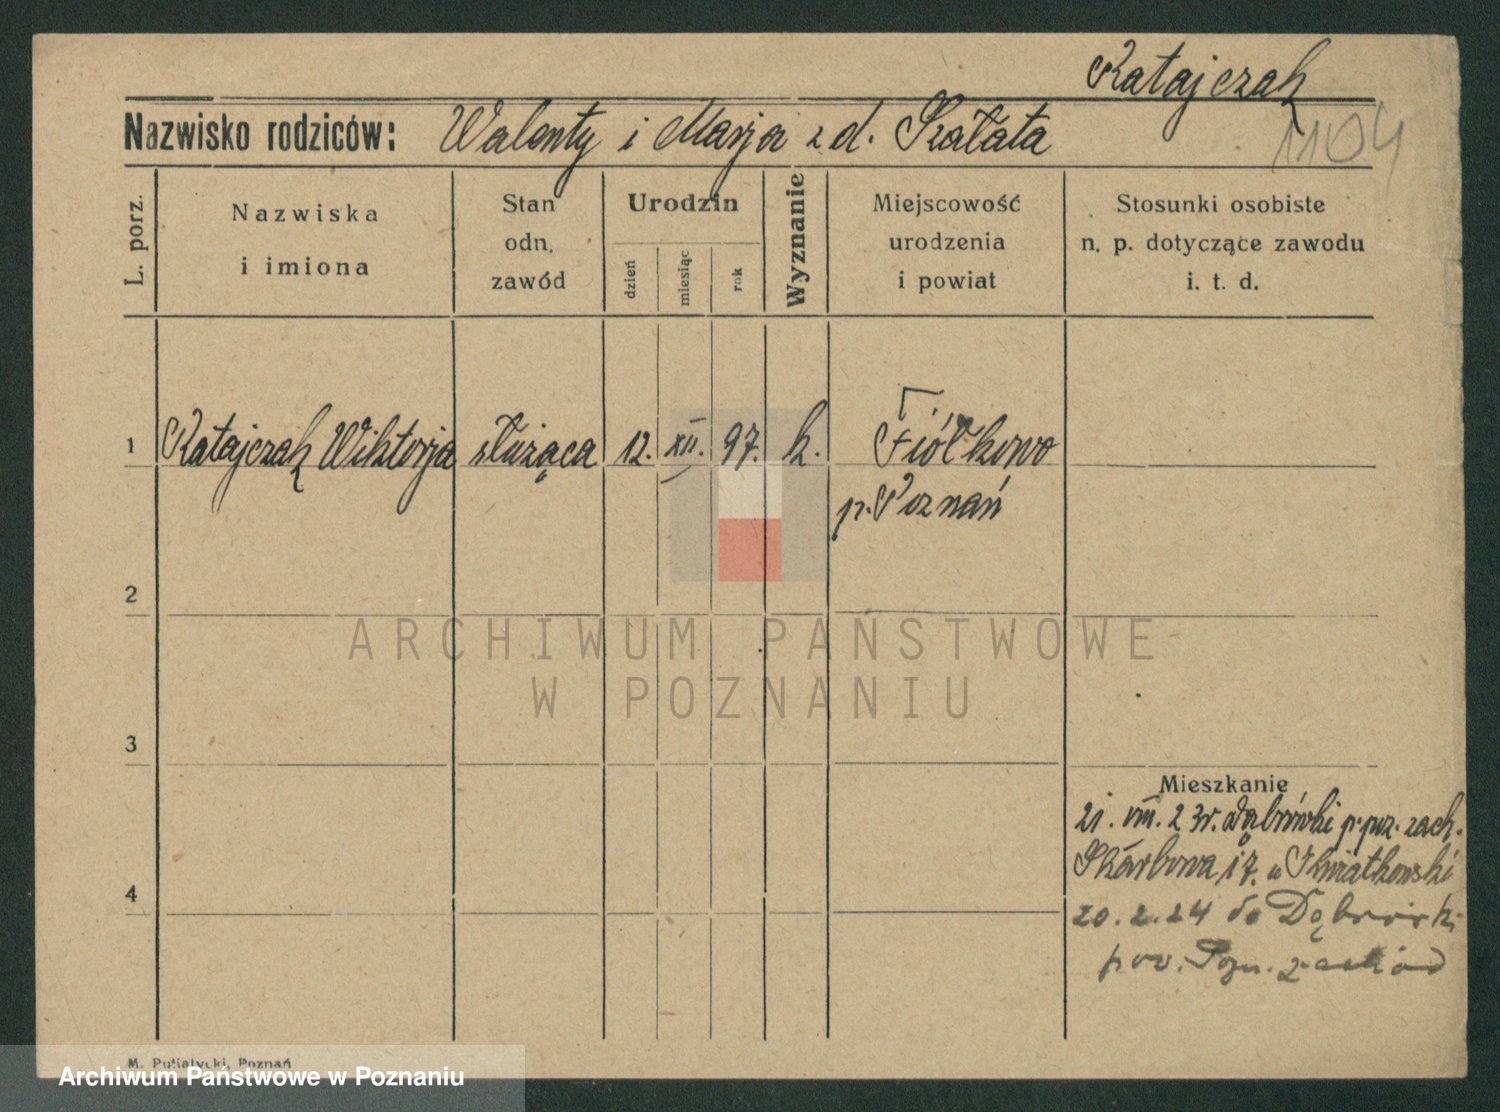 Ratajczak
Nazwisko rodziców: Walenty i Marja z d. Szałata
1104
L. porz.
Nazwiska
i imiona
Stan
odn.
zawód
Urodzin
dzień
miesiąc
rok
Wyznanie
Miejscowość
urodzenia
i powiat
Stosunki osobiste
n. p. dotyczące zawodu
i. t. d.
1 Ratajczak Wiktorja służąca 12. XII. 97. k. Fiółkowo
p. Poznań
2
3
4
Mieszkanie
21. VIII. 23r. Dąbrówki p. poz. zach.
Skarbowa 17. u Kwiatkowski
20.2.24 do Dąbrówki
pow. Pozn. zachód
M. Putiatycki, Poznań
ARCHIWUM PAŃSTWOWE
W POZNANIU
Archiwum Państwowe w Poznaniu